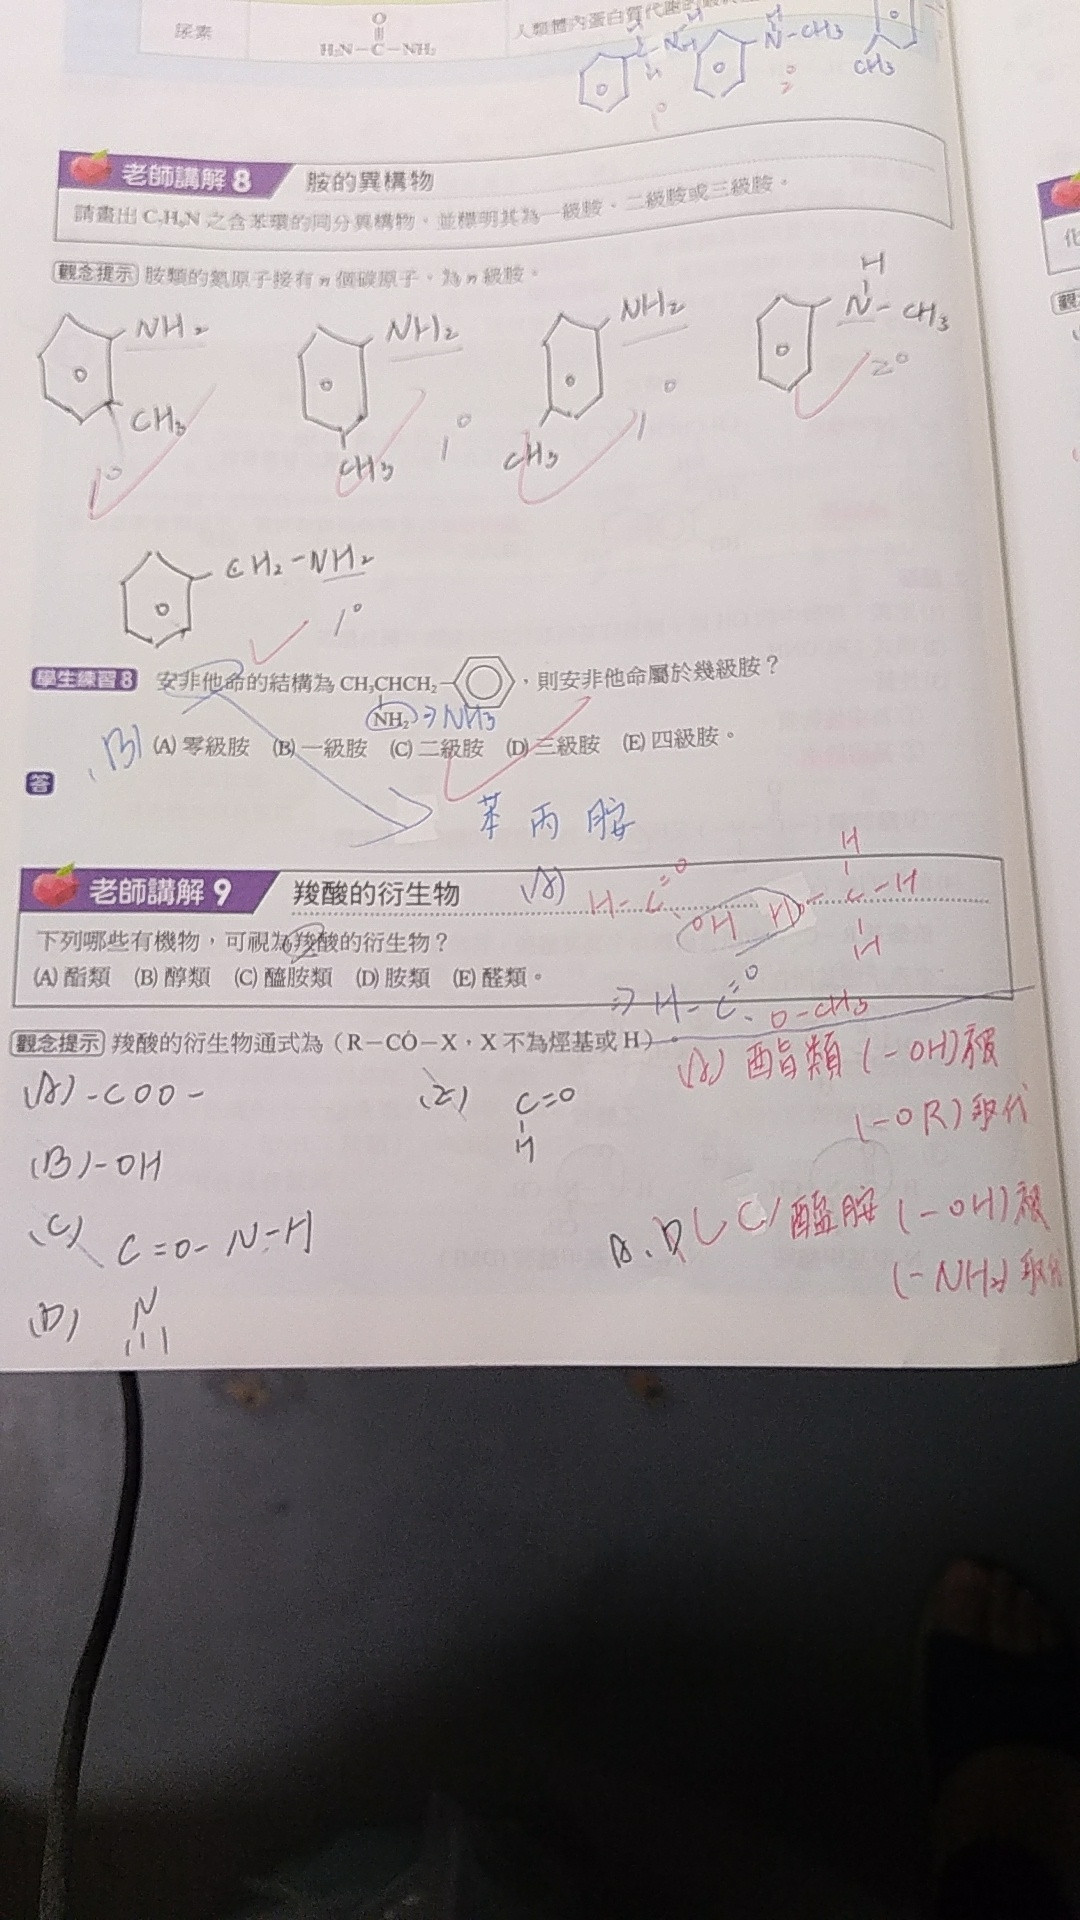 尿素
O
H₂N－C－NH₂
人類體內蛋白質代謝的最
N－CH₃
CH₃
老師講解 8　胺的異構物
請畫出 C₇H₉N 之含苯環的同分異構物，並標明其為一級胺、二級胺或三級胺。
觀念提示　胺類的氮原子接有 n 個碳原子，為 n 級胺。
NH₂　NH₂　NH₂　H
N－CH₃
CH₃　CH₃　CH₃
1°　1°　1°　2°
CH₂－NH₂
1°
學生練習 8　安非他命的結構為 CH₃CHCH₂－，則安非他命屬於幾級胺？
NH₂ ⇒ NH₃
(B) (A) 零級胺　(B) 一級胺　(C) 二級胺　(D) 三級胺　(E) 四級胺。
答
苯丙胺
老師講解 9　羧酸的衍生物
下列哪些有機物，可視為羧酸的衍生物？
(A) 酯類　(B) 醇類　(C) 醯胺類　(D) 胺類　(E) 醛類。
(A) H－C=O OH
H
C－H
H
⇒ H－C=O O－CH₃
觀念提示　羧酸的衍生物通式為（R－CO－X，X 不為烴基或 H）。
(A) -COO-
(E) C=O
H
(A) 酯類 (－OH) 被
(－OR) 取代
(B) -OH
(C) C=O-N-H
C 醯胺 (－OH) 被
(－NH₂) 取代
(D) N